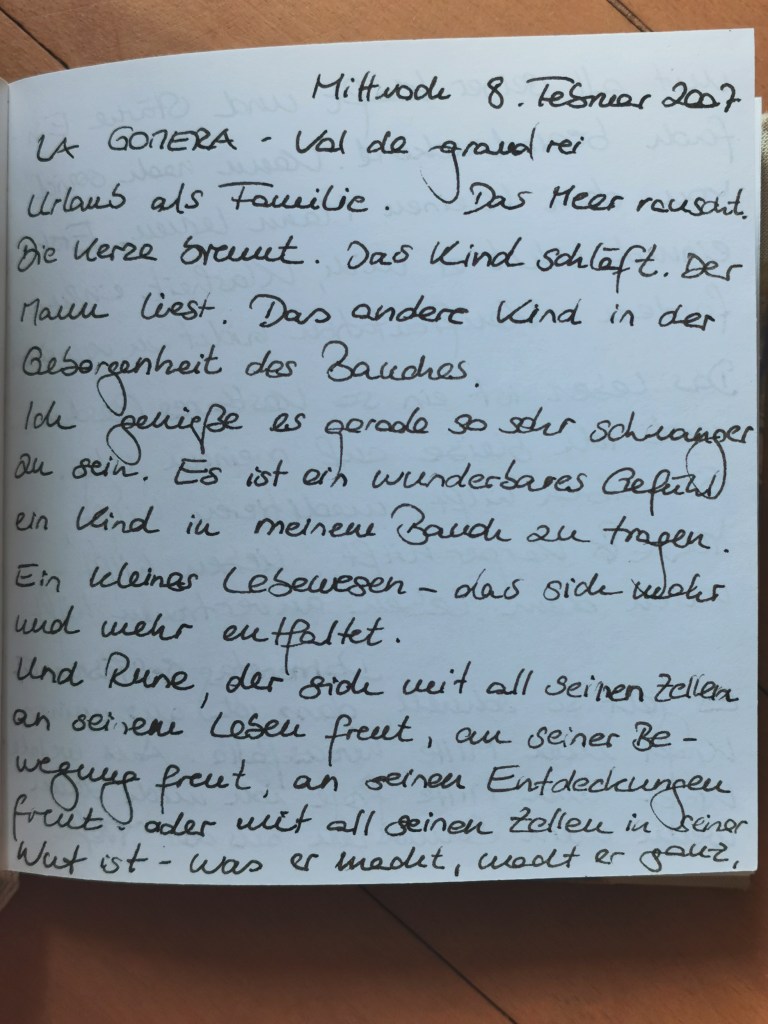 Mittwoch 8. Februar 2007
LA GOMERA - Val de grand rei
Urlaub als Familie. Das Meer rauscht.
Die Kerze brennt. Das Kind schläft. Der
Mann liest. Das andere Kind in der
Geborgenheit des Bauches.
Ich genieße es gerade so sehr schwanger
zu sein. Es ist ein wunderbares Gefühl
ein Kind in meinem Bauch zu tragen.
Ein kleines Lebewesen - das sich mehr
und mehr entfaltet.
Und Rune, der sich mit all seinen Zellen
an seinem Leben freut, an seiner Be-
wegung freut, an seinen Entdeckungen
freut - oder mit all seinen Zellen in seiner
Wut ist - was er macht, macht er ganz.